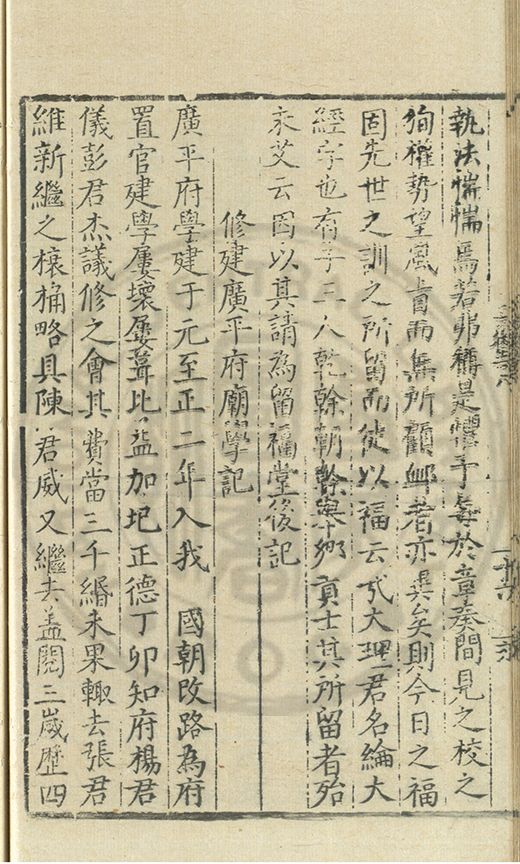 執法惴惴焉若弗稱是懼予每於章奏間見之校之
徇權勢望風旨而無所顧䘏者亦異矣則今日之福
固先世之訓之所留而徒以福云乎哉大理君名綸大
經字也有子三人乾榦朝榦舉鄉貢士其所留者殆
未艾云因以其請為留福堂後記
修建廣平府廟學記
廣平府學建于元至正二年入我 國朝改路為府
置官建學屢壞屢葺比益加圮正德丁卯知府楊君
儀彭君杰議修之會其費當三千緡未果輒去張君
維新繼之榱桷略具陳君威又繼去蓋閱三歲歷四